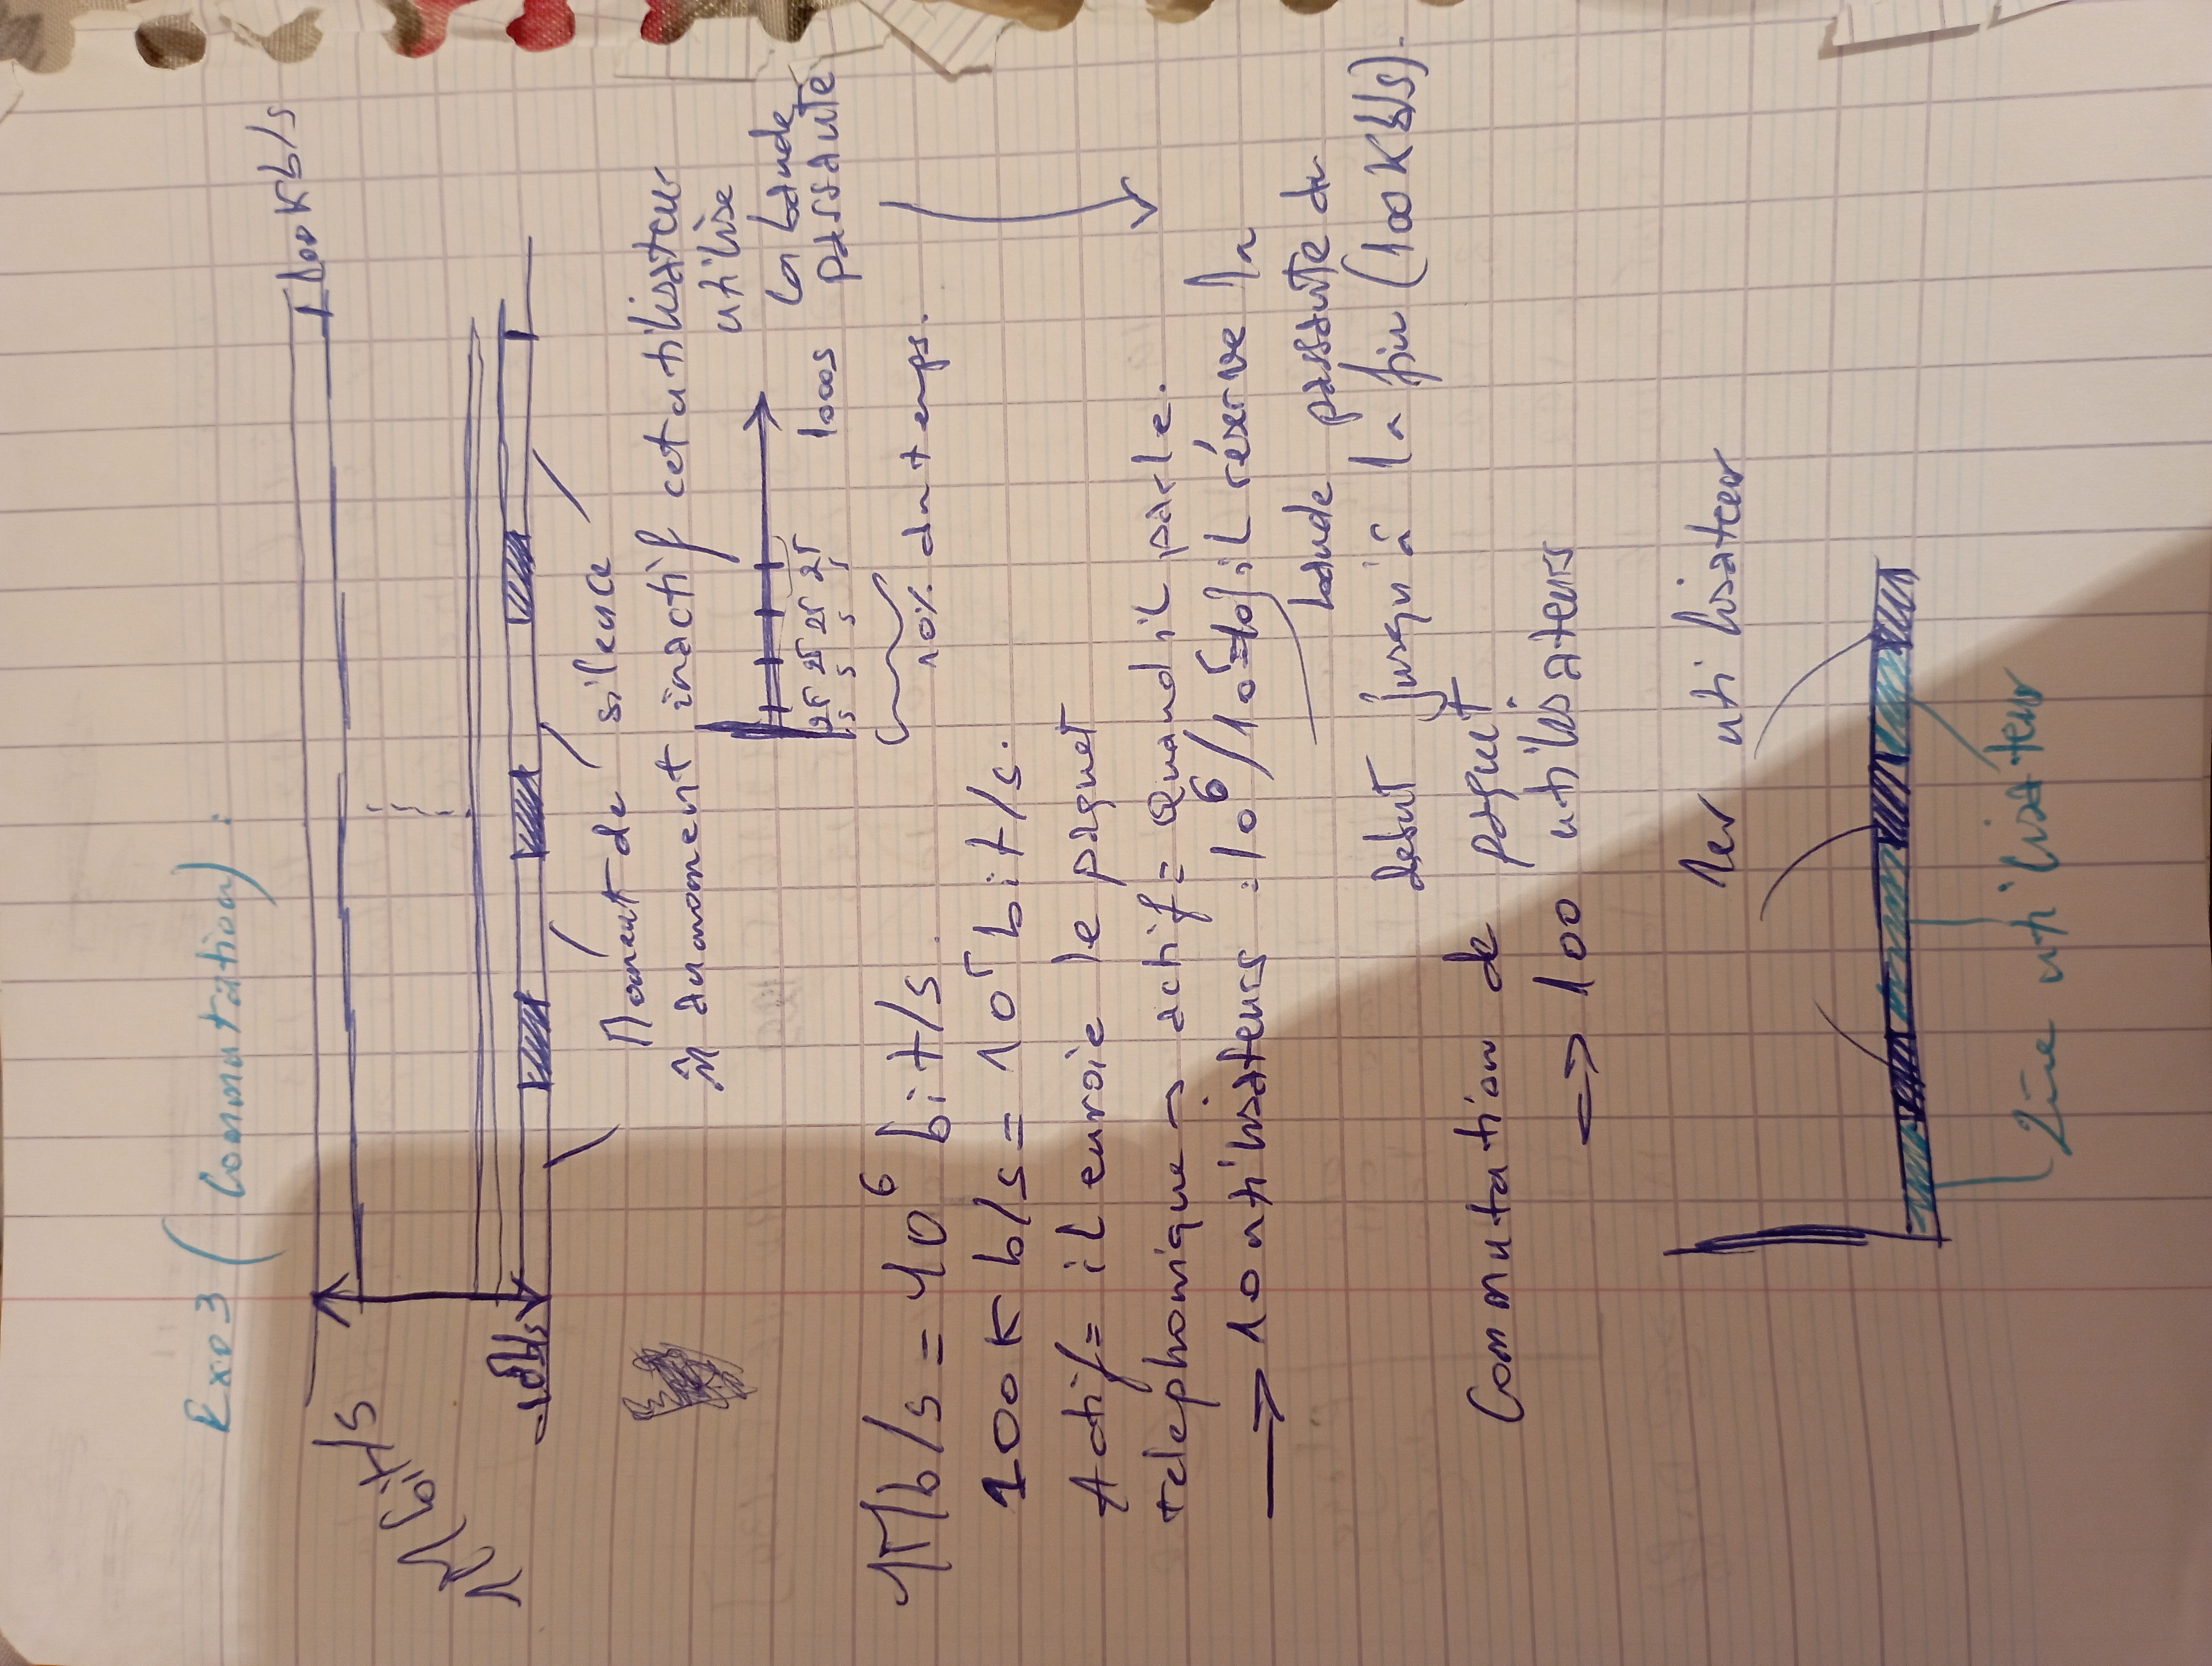 Exo 3 (Commutation) :
1 Mbit/s
100Kb/s
Moment de silence
à aumoment inactif cet utilisateur
utilise
la bande
passante
25 25 25 25
s s s s
100s
10% du temps.
1Mb/s = 10⁶ bit/s.
100Kb/s = 10⁵ bit/s.
Actif = il envoie le paquet
telephonique → actif = Quand il parle.
→ 10 utilisateurs : 10⁶/10⁵ = 10, il réserve la
bande passante du
debut jusqu'à la fin (100Kb/s).
Commutation de paquet
=> 100 utilisateurs
1er utilisateur
2ème utilisateur